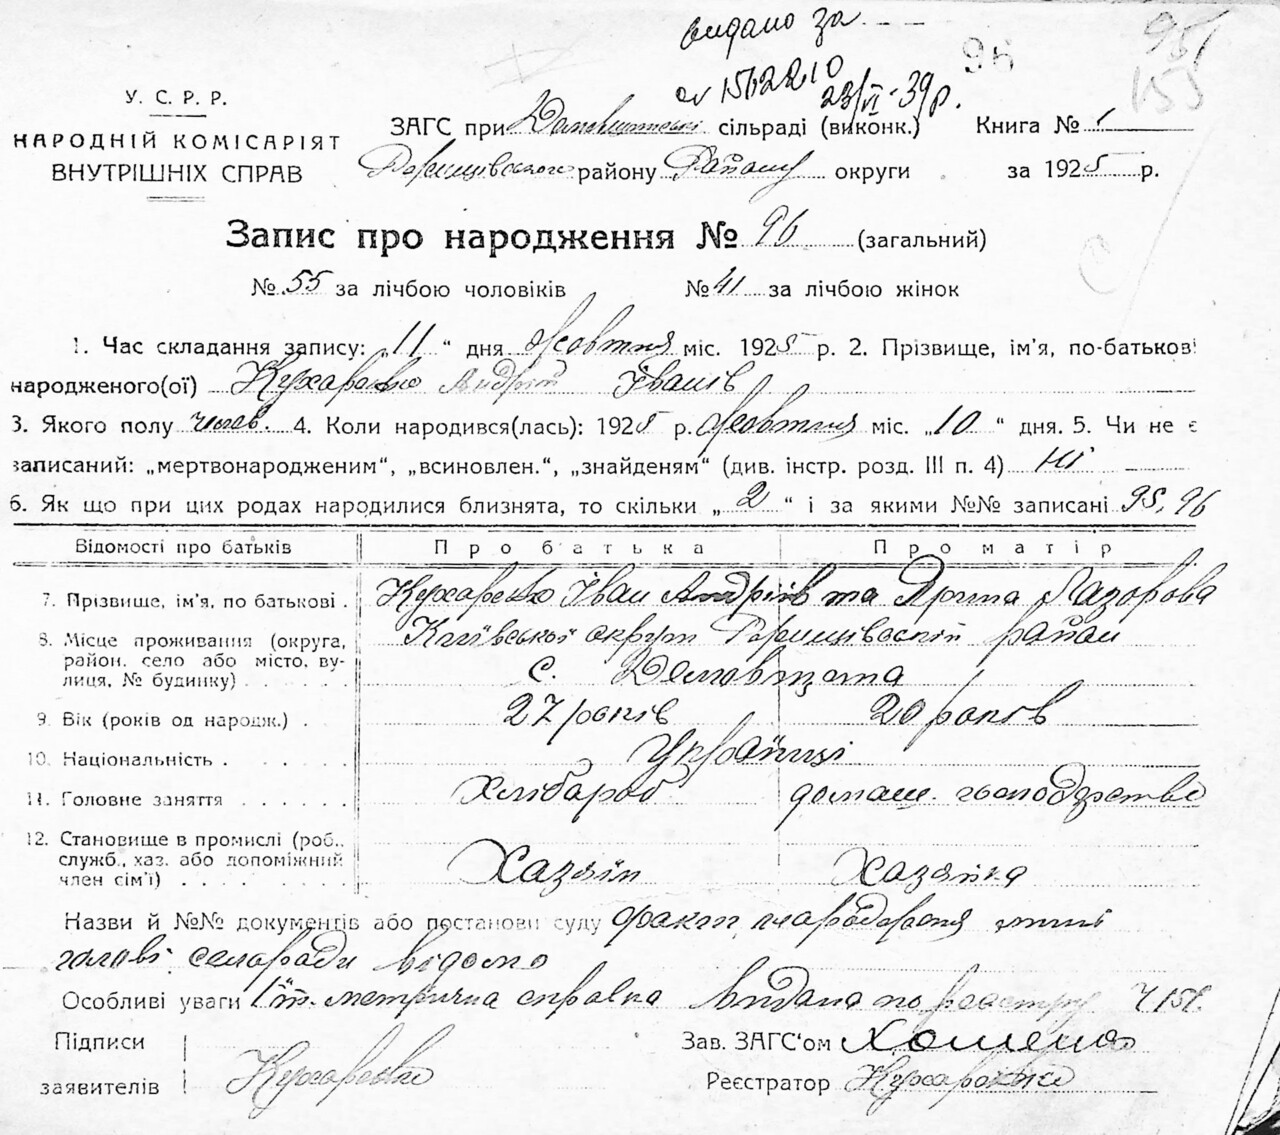 видано за
96
951
155
23/VI-39р.
У. С. Р. Р.
НАРОДНІЙ КОМІСАРІЯТ
ВНУТРІШНІХ СПРАВ
ЗАГС при сільраді (виконк.) Книга № 1
району округи за 1925 р.
Запис про народження № 96 (загальний)
№ 55 за лічбою чоловіків № 41 за лічбою жінок
1. Час складання запису: „11“ дня Жовтня міс. 1925 р. 2. Прізвище, ім'я, по-батькові
народженого(ої) Кухаренко Андрій Іванів
3. Якого полу чолов. 4. Коли народився(лась): 1925 р. Жовтня міс. „10“ дня. 5. Чи не є
записаний: „мертвонародженим“, „всиновлен.“, „знайденям“ (див. інстр. розд. III п. 4) ні
6. Як що при цих родах народилися близнята, то скільки „2“ і за якими №№ записані 95, 96
Відомості про батьків Про батька Про матір
7. Прізвище, ім'я, по батькові . Кухаренко Іван Андріїв та Ярина Лазорова
8. Місце проживання (округа, Київської округи район
район, село або місто, ву- с.
лиця, № будинку) . . . . .
9. Вік (років од народж.) . 27 років 20 років
10. Національність . . . . . Українці
11. Головне заняття . . . . . . Хлібороб домаш. господарство
12. Становище в промислі (роб.,
служб., хаз. або допоміжний Хазяїн Хазяйка
член сім'ї) . . . . . . .
Назви й №№ документів або постанови суду факт народження
голові сельради відомо
Особливі уваги метрична справка видана по реестру
Підписи Зав. ЗАГС'ом
заявителів Кухаренко Реєстратор